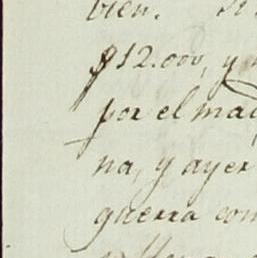 bien. Si
$12.000, y
por el ma
na, y ayer
guerra con